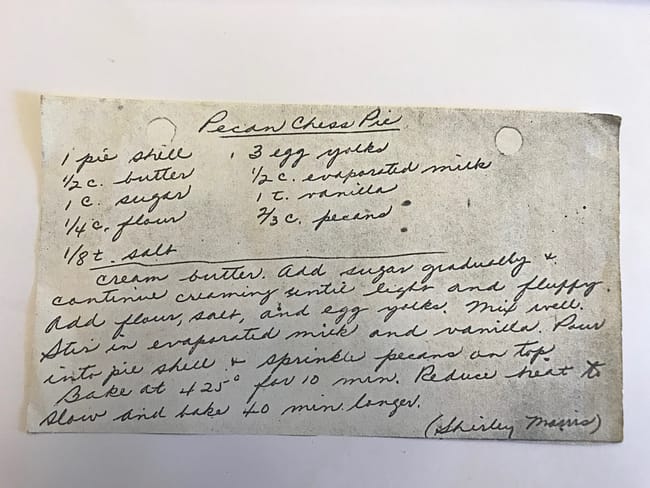 Pecan Chess Pie
1 pie shell 3 egg yolks
1/2 c. butter 1/2 c. evaporated milk
1 c. sugar 1 t. vanilla
1/4 c. flour 2/3 c. pecans
1/8 t. salt
Cream butter. Add sugar gradually &
continue creaming until light and fluffy.
Add flour, salt, and egg yolks. Mix well.
Stir in evaporated milk and vanilla. Pour
into pie shell & sprinkle pecans on top.
Bake at 425° for 10 min. Reduce heat to
slow and bake 40 min. longer.
(Shirley Morris)